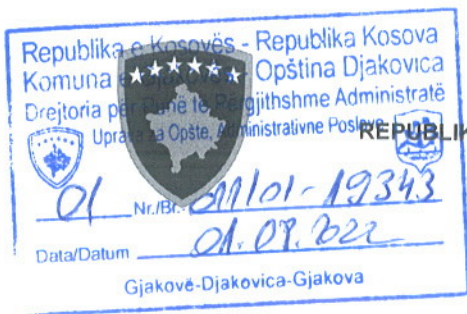 Republika e Kosovës - Republika Kosova
Komuna e Gjakovës - Opština Djakovica
Drejtoria për Punë të Përgjithshme Administratë
Uprava za Opšte, Administrativne Poslove
REPUBLIK
01 Nr./Br. 011/01-19343
Data/Datum 01.09.2022
Gjakovë-Djakovica-Gjakova